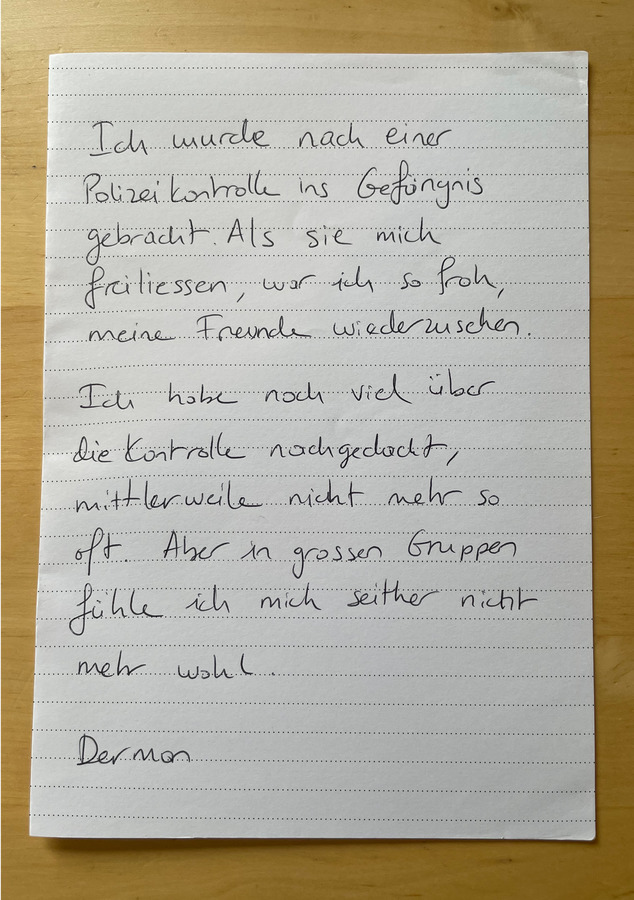 Ich wurde nach einer
Polizeikontrolle ins Gefängnis
gebracht. Als sie mich
freiliessen, war ich so froh,
meine Freunde wiederzusehen.
Ich habe noch viel über
die Kontrolle nachgedacht,
mittlerweile nicht mehr so
oft. Aber in grossen Gruppen
fühle ich mich seither nicht
mehr wohl.
Dermon